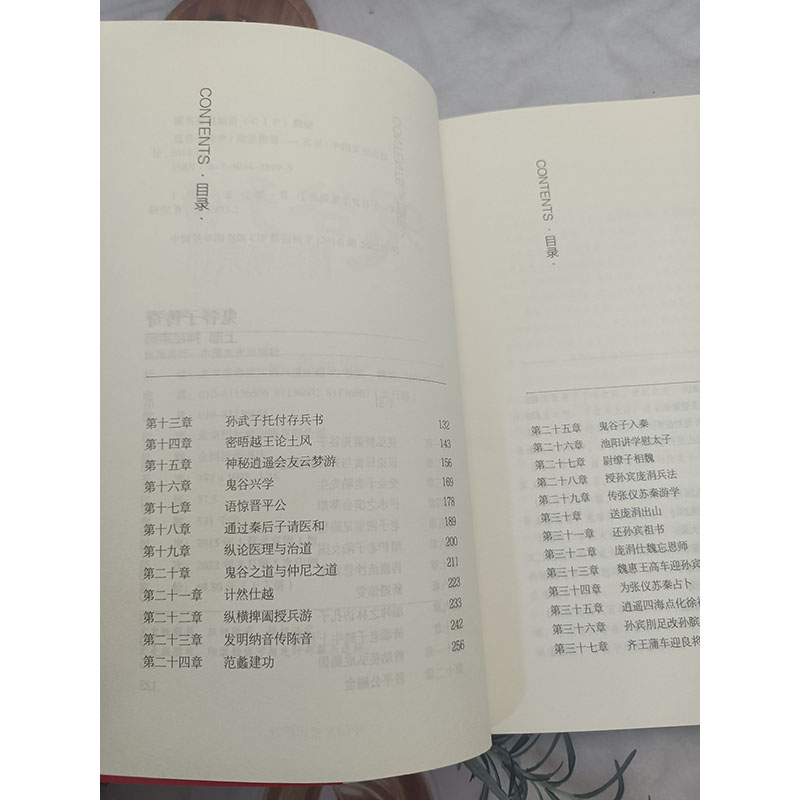 CONTENTS · 目录 ·
第十三章 孙武子托付存兵书 132
第十四章 密晤越王论土风 143
第十五章 神秘逍遥会友云梦游 156
第十六章 鬼谷兴学 169
第十七章 语惊晋平公 178
第十八章 通过秦后子请医和 189
第十九章 纵论医理与治道 200
第二十章 鬼谷之道与仲尼之道 211
第二十一章 计然仕越 223
第二十二章 纵横捭阖授兵游 233
第二十三章 发明纳音传陈音 242
第二十四章 范蠡建功 256
CONTENTS · 目录 ·
第二十五章 鬼谷子入秦
第二十六章 池阳讲学慰太子
第二十七章 尉缭子相魏
第二十八章 授孙宾庞涓兵法
第二十九章 传张仪苏秦游学
第三十章 送庞涓出山
第三十一章 还孙宾祖书
第三十二章 庞涓仕魏忘恩师
第三十三章 魏惠王高车迎孙宾
第三十四章 为张仪苏秦占卜
第三十五章 逍遥四海点化徐
第三十六章 孙宾刖足改孙膑
第三十七章 齐王蒲车迎良将